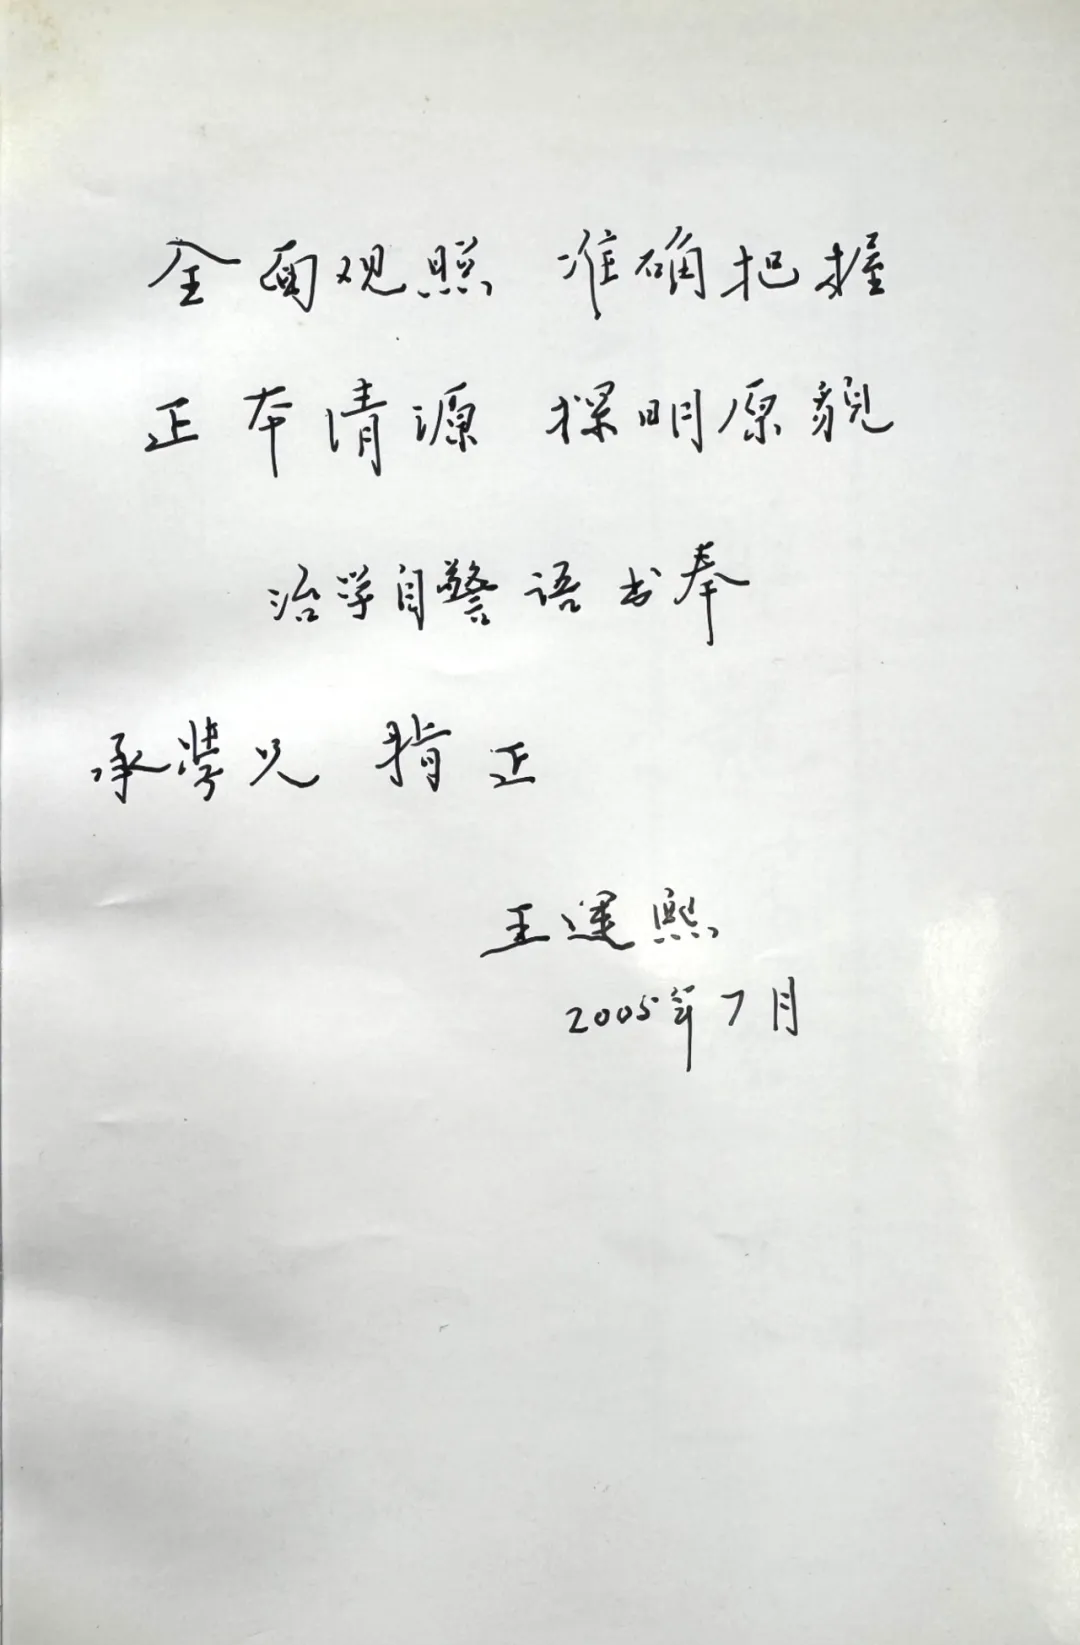 全面观照 准确把握
正本清源 探明原貌
治学自警语书奉
承学兄 指正
王运熙
2005年7月